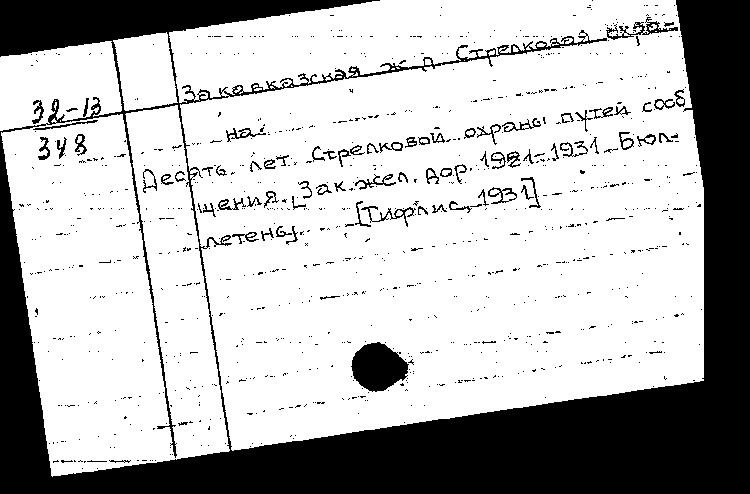 32-13
348
Закавказская ж. д. Стрелковая охра-
на.
Десять лет Стрелковой охраны путей сооб
щения. [Зак. жел. дор. 1921-1931. Бюл-
летень]. [Тифлис, 1931]